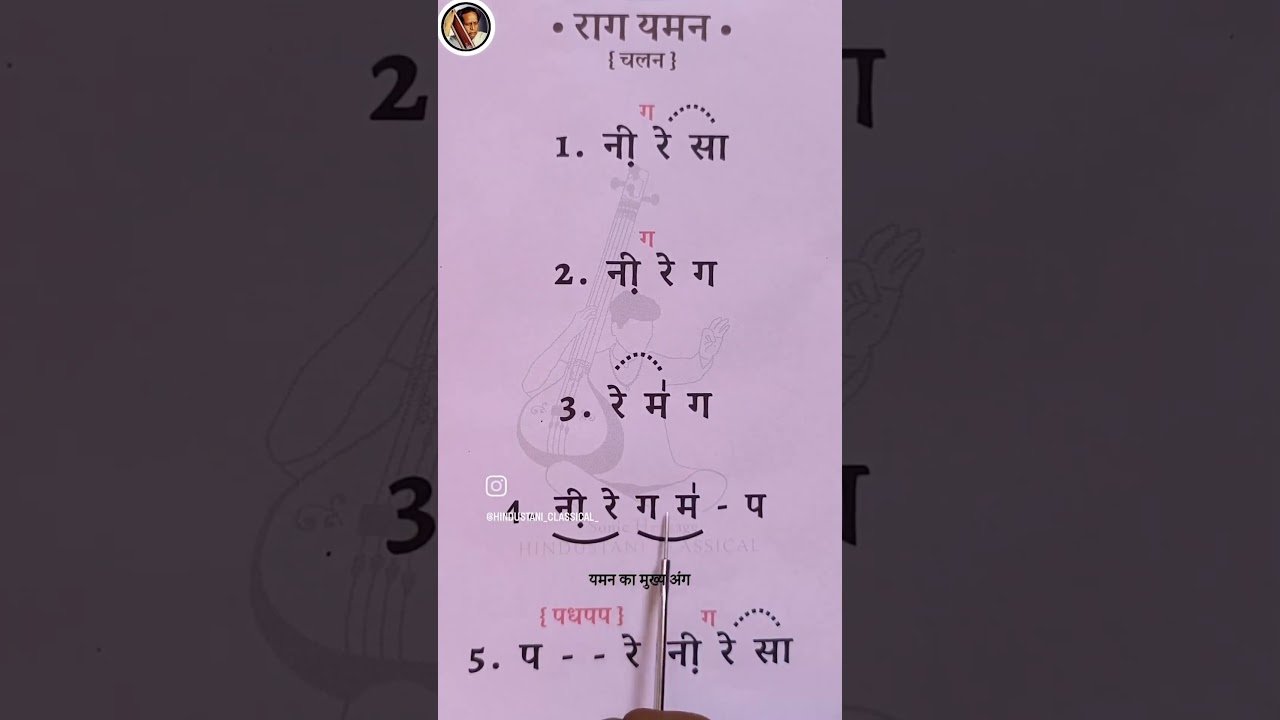 • राग यमन •
{ चलन }
ग
1. ऩी रे सा
ग
2. ऩी रे ग
3. रे म॑ ग
4 ऩी रे ग म॑ - प
@HINDUSTANI_CLASSICAL_
Sonic Heritage
HINDUSTANI CLASSICAL
यमन का मुख्य अंग
{ पधपप } ग
5. प - - रे ऩी रे सा
2
3